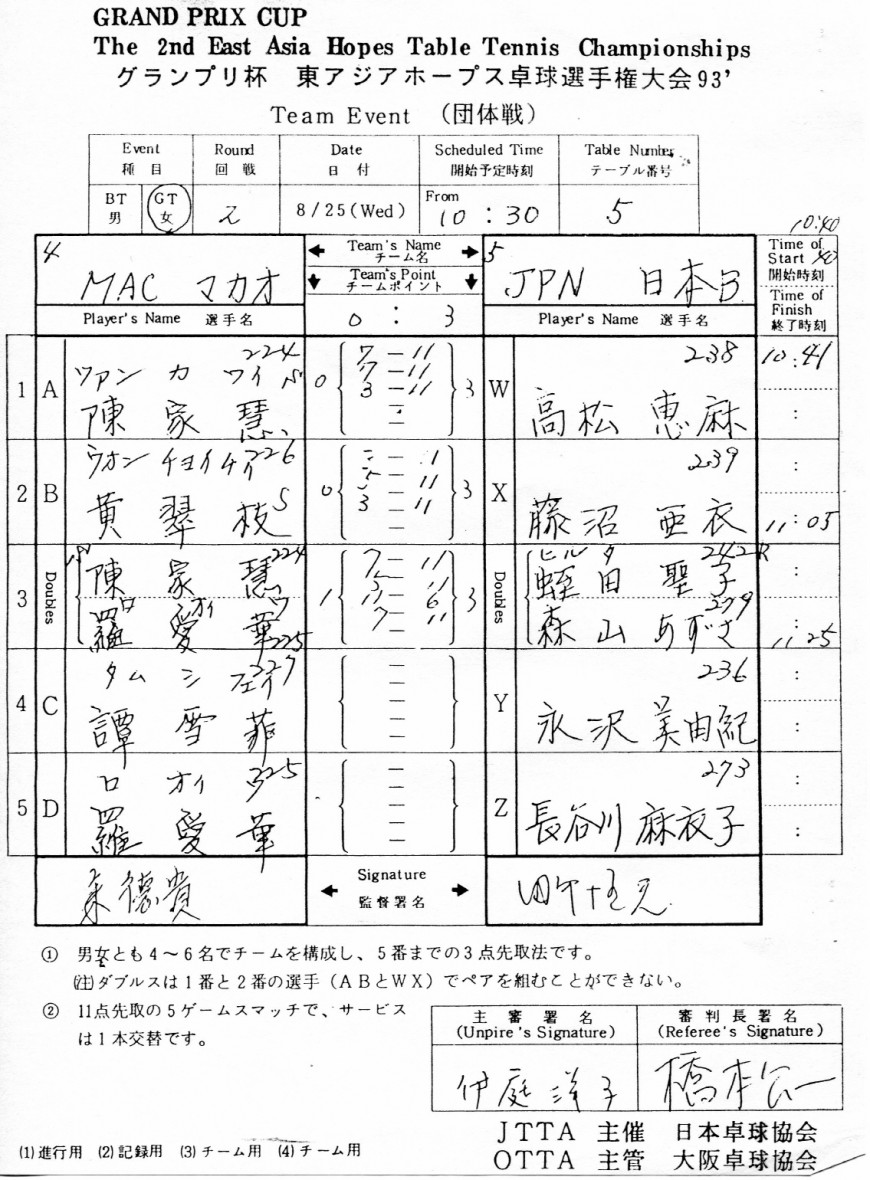 GRAND PRIX CUP
The 2nd East Asia Hopes Table Tennis Championships
グランプリ杯 東アジアホープス卓球選手権大会93'
Team Event (団体戦)
Event Round Date Scheduled Time Table Number
種目 回戦 日付 開始予定時刻 テーブル番号
BT 男 GT 女 2 8/25(Wed) From 10:30 5
10:40
4 MAC マカオ ← Team's Name チーム名 → 5 JPN 日本B Time of Start 開始時刻
↓ Team's Point チームポイント ↓ Time of Finish 終了時刻
Player's Name 選手名 0 : 3 Player's Name 選手名
224 238
1 A 陳家慧 0 7-11 3 W 高松恵麻 10:41
7-11
3-11
ウォン チョイ 226 239
2 B 黄翠枝 0 3 X 藤沼亜衣 11:05
5 - 11
3 - 11
224
3 Doubles 陳家慧 1 7 - 11 3 Doubles ヒルタ 蛭田聖子
11 - 6
羅愛華 225 7 - 11 森山あずさ 279 11:25
タム シ フェイ 227 236
4 C 譚雪菲 Y 永沢美由紀
ロ オイ 225 273
5 D 羅愛華 Z 長谷川麻衣子
← Signature 監督署名 →
① 男女とも4～6名でチームを構成し、5番までの3点先取法です。
(注)ダブルスは1番と2番の選手(ABとWX)でペアを組むことができない。
② 11点先取の5ゲームスマッチで、サービス
は1本交替です。
主審署名 (Unpire's Signature) 審判長署名 (Referee's Signature)
伊庭洋子 橋本公一
JTTA 主催 日本卓球協会
(1)進行用 (2)記録用 (3)チーム用 (4)チーム用
OTTA 主管 大阪卓球協会